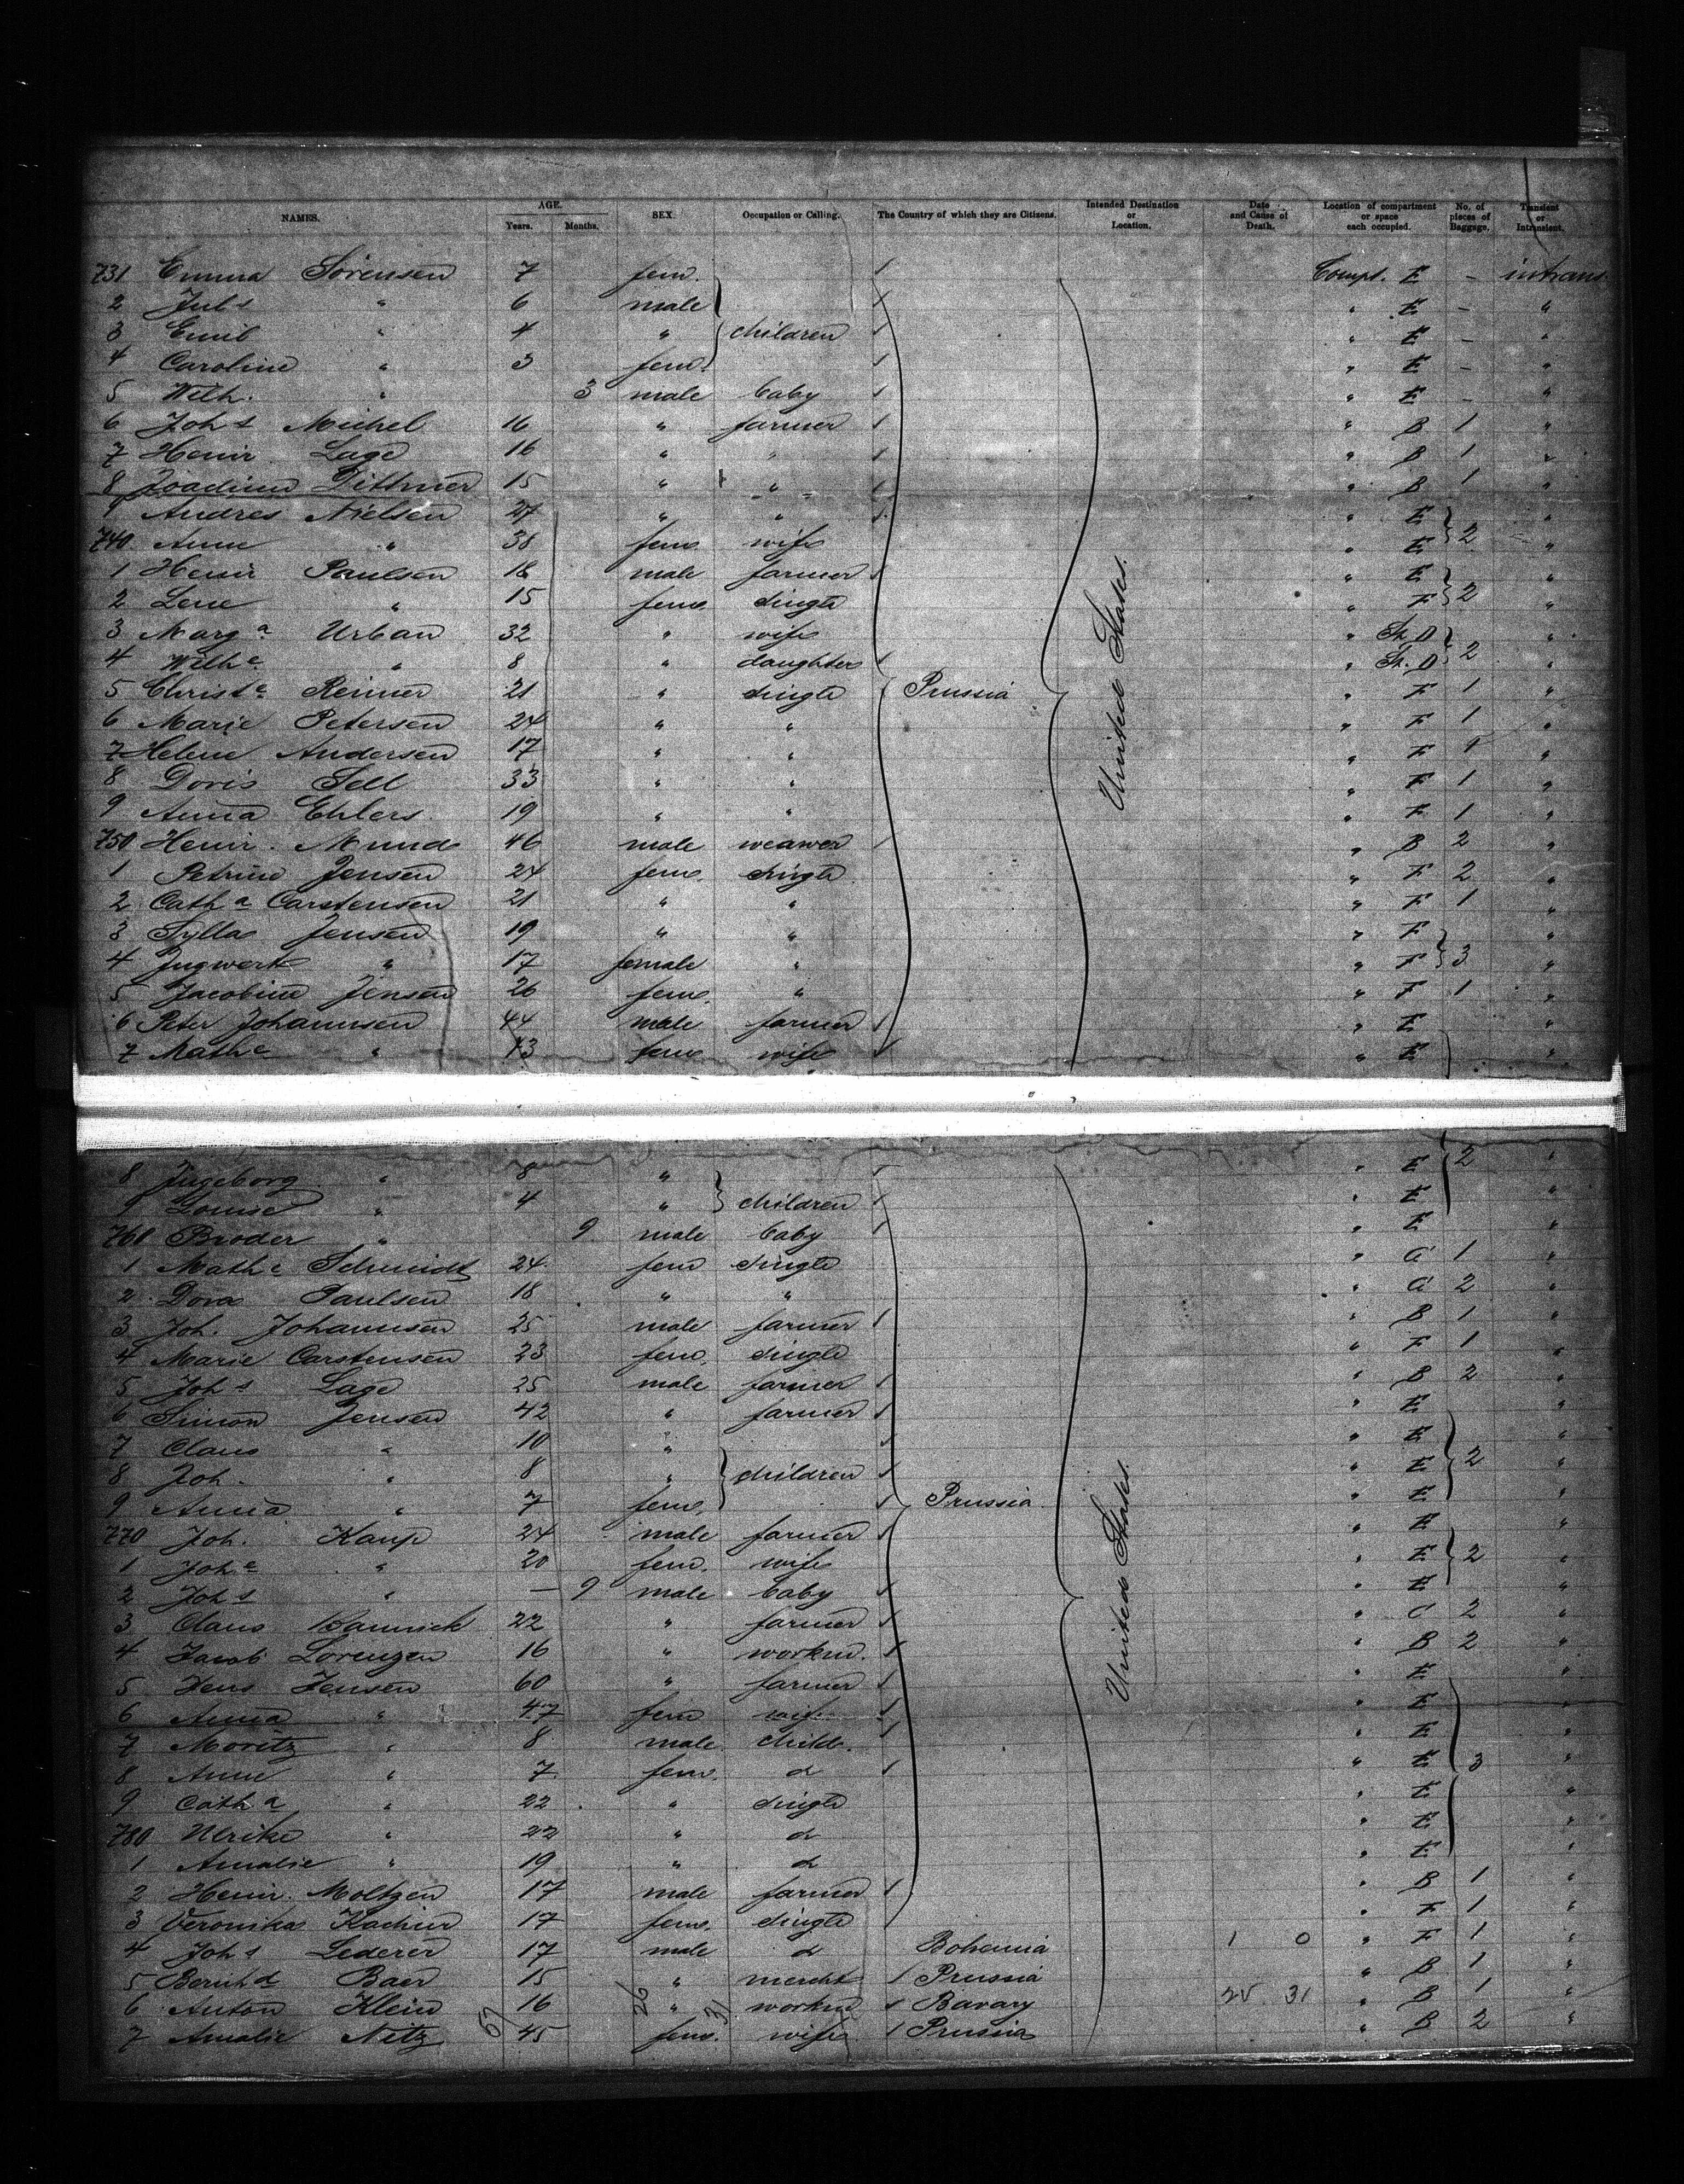 NAMES. AGE. Years. Months. SEX. Occupation or Calling. The Country of which they are Citizens. Intended Destination or Location. Date and Cause of Death. Location of compartment or space each occupied. No. of pieces of Baggage. Transient or Intransient.
731 Emma Sörensen 7 fem. Compt. E - intrans.
2 Juls " 6 male " E - "
3 Emil " 4 " children " E - "
4 Caroline " 3 fem. " E - "
5 Wilh. " 3 male baby " E - "
6 Johs Michel 16 " farmer " B 1 "
7 Heinr Lage 16 " " " B 1 "
8 Joachim Dittmer 15 " " " B 1 "
9 Andres Nielsen 27 " " " E "
740 Anne " 38 fem wife " E 2 "
1 Heinr Paulsen 18 male farmer " E "
2 Lene " 15 fem single " F 2 "
3 Marga Urban 32 " wife " St. D "
4 Wilhe " 8 " daughter " St. D 2 "
5 Christe Reimer 21 " single Prussia United States. " F 1 "
6 Marie Petersen 24 " " " F 1 "
7 Helene Andersen 17 " " " F 1 "
8 Doris Sell 33 " " " F 1 "
9 Anna Ehlers 19 " " " F 1 "
750 Heinr. Mund 46 male weawer " B 2 "
1 Petrine Jensen 24 fem. single " F 2 "
2 Catha Carstensen 21 " " " F 1 "
3 Sylla Jensen 19 " " " F "
4 Ingwert " 17 female " " F 3 "
5 Jacobine Jensen 26 fem. " " F 1 "
6 Peter Johannsen 44 male farmer " E "
7 Mathe " 43 fem wife " E "
8 Ingeborg " 8 " " E 2 "
9 Louise " 4 " children " E "
760 Broder " 9 male baby " E "
1 Mathe Schmidt 24 fem single " C 1 "
2 Dora Paulsen 18 " " " C 2 "
3 Joh. Johannsen 25 male farmer " B 1 "
4 Marie Carstensen 23 fem. single " F 1 "
5 Johs Lage 25 male farmer " B 2 "
6 Simon Jensen 42 " farmer " E "
7 Claus " 10 " " E "
8 Joh. " 8 " children " E 2 "
9 Anna " 7 fem. Prussia United States. " E "
770 Joh. Kaup 24 male farmer " E "
1 Johe " 20 fem. wife " E 2 "
2 Johs " — 9 male baby " E "
3 Claus 22 " farmer " C 2 "
4 Jacob Lorenzen 16 " workm. " B 2 "
5 Jens Jensen 60 " farmer " E "
6 Anna " 47 fem wife " E "
7 Moritz " 8 male child. " E "
8 Anne " 7 fem. d " E 3 "
9 Catha " 22 " single " E "
780 Ulrike " 22 " d " E "
1 Amalie " 19 " d " E "
2 Heinr. Moltzen 17 male farmer " B 1 "
3 Veronika Kachier 17 fem. single " F 1 "
4 Johs Lederer 17 male d Bohemia 1 0 " F 1 "
5 Bernhd Baer 15 " mercht Prussia " B 1 "
6 Anton Klein 16 " workm Bavary 31 " B 1 "
7 Amalie Netz 45 fem. wife Prussia " B 2 "
57 26 31